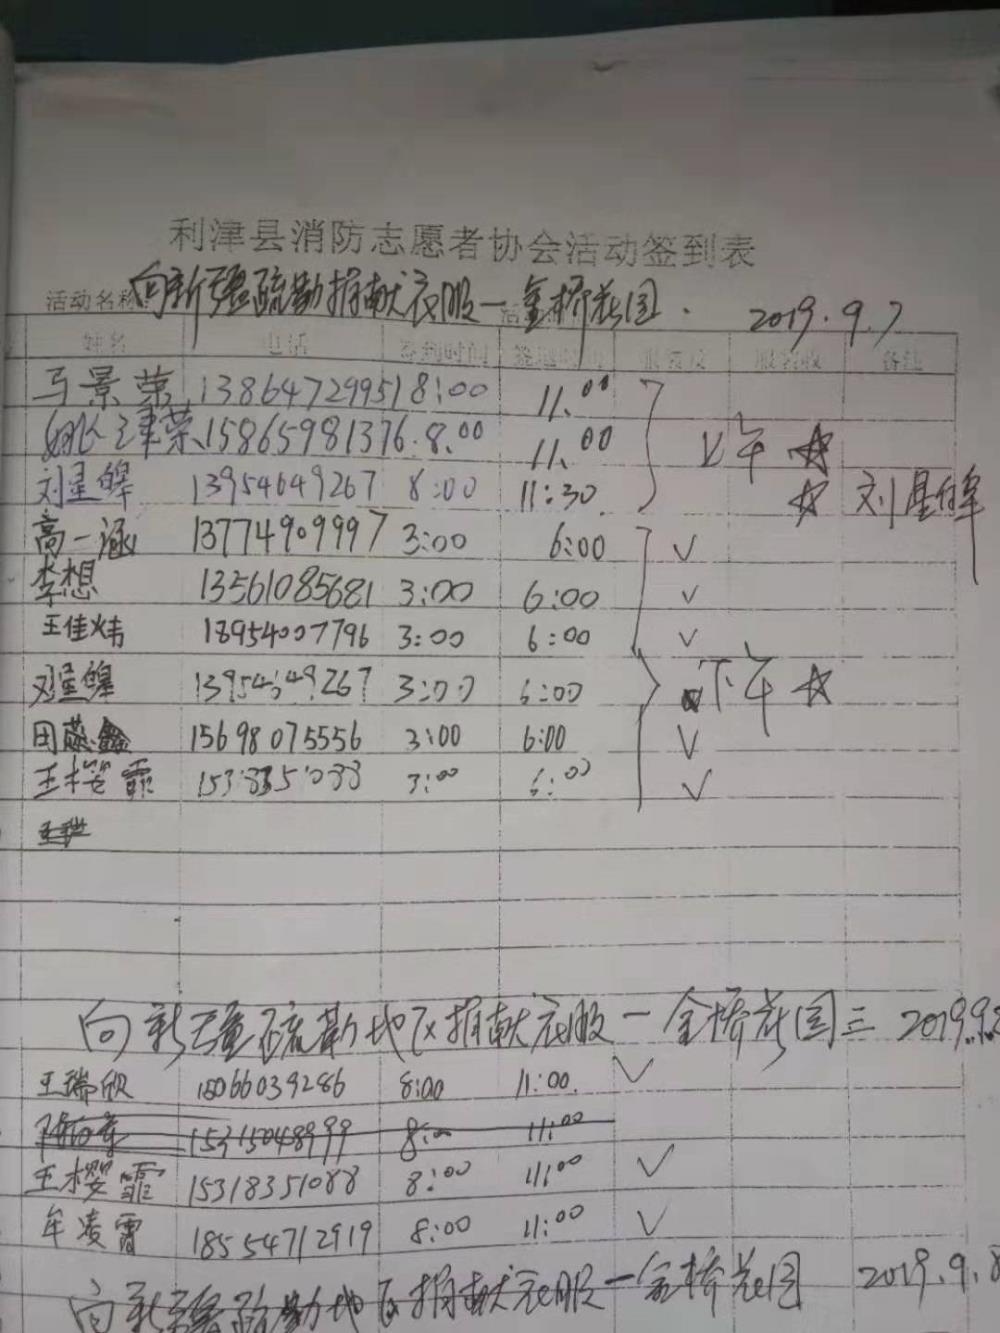 利津县消防志愿者协会活动签到表
活动名称 向新疆疏勒捐献衣服一金桥花园. 2019.9.7
姓名 电话 签到时间 签退时间
马景荣 13864729951 8:00 11:00
姚津荣 15865981376 8:00 11:00 上午 ☆
刘星皞 13954649267 8:00 11:30 ☆ 刘星皞
高一涵 13774909997 3:00 6:00 ✓
李想 13561085681 3:00 6:00 ✓
王佳炜 18954007796 3:00 6:00 ✓
刘星皞 13954649267 3:00 6:00 下午 ☆
田燕鑫 15698075556 3:00 6:00 ✓
王樱霏 3:00 6:00 ✓
向新疆疏勒地区捐献衣服一金桥花园三 2019.9.
王瑞欣 15066039286 8:00 11:00 ✓
15315048999 8:00 11:00
王樱霏 15318351088 8:00 11:00 ✓
牟凌霄 18554712919 8:00 11:00 ✓
向新疆疏勒地区捐献衣服一金桥花园 2019.9.8